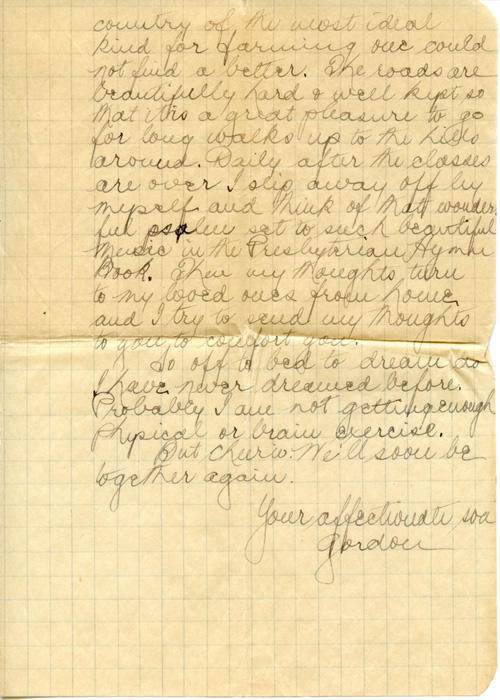 country of the most ideal
kind for farming one could
not find a better. The roads are
beautifully hard & well kept so
that it is a great pleasure to go
for long walks up to the hills
around. Daily after the classes
are over I slip away off by
myself and think of that wonder-
ful psalm set to such beautiful
music in the Presbyterian Hymn
Book. Then my thoughts turn
to my loved ones from home
and I try to send my thoughts
to you to comfort you.
So off to bed to dream as
I have never dreamed before.
Probably I am not getting enough
physical or brain exercise.
But Cheerio. We'll soon be
together again.
Your affectionate son
Gordon